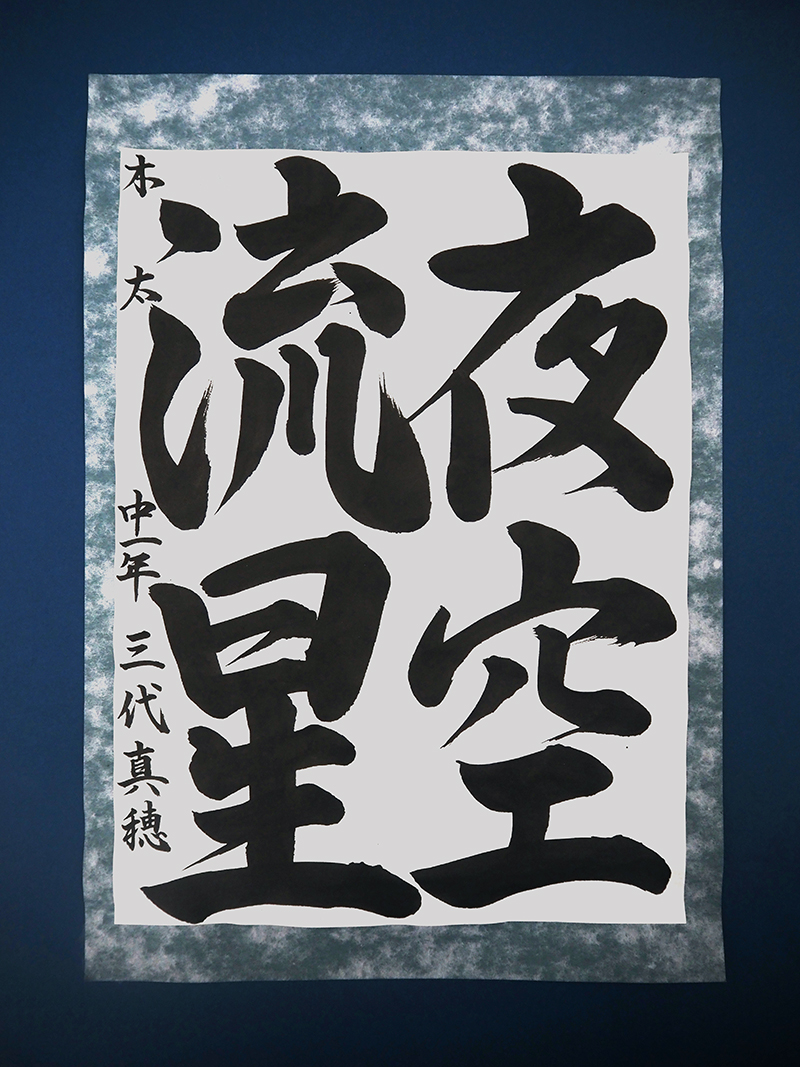 夜空
流星
木太 中一年 三代真穂